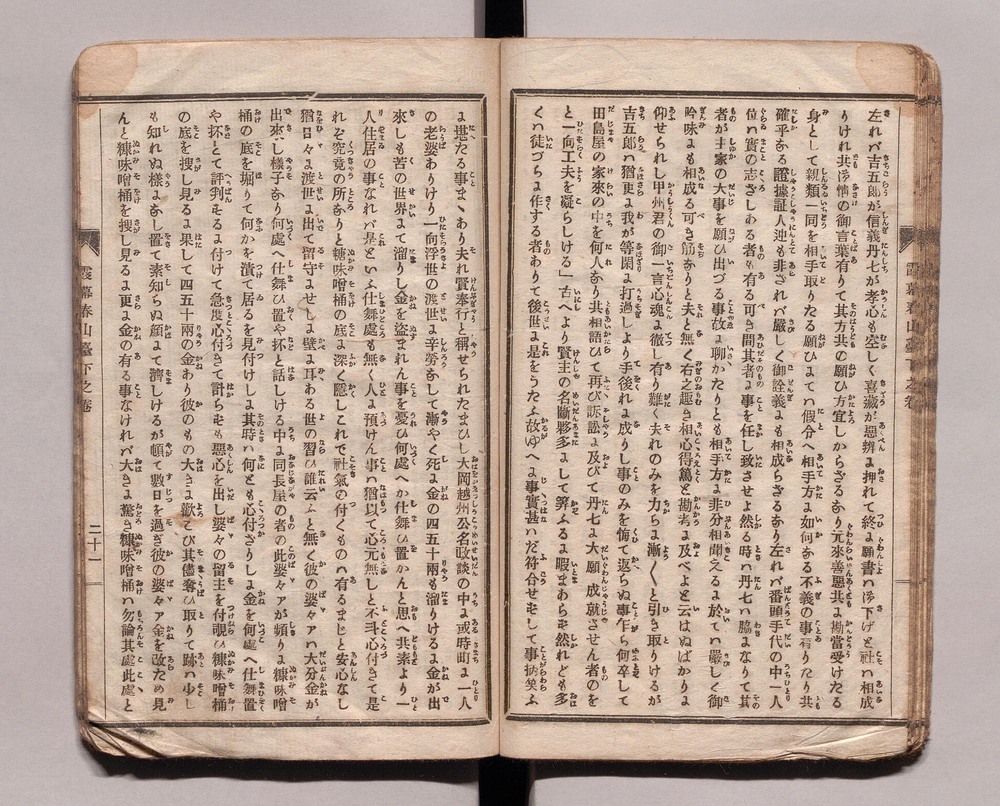 左れバ吉五郎が信義丹七が孝心も空しく喜藏が惡辨ま押れて終ま願書ハ御下げと社ハ相成
りけれ共御情の御言葉有りて其方共の願ひ方宜しからざるあり元來善惡共ま勘當受けたる
身として親類一同を相手取りたる願ひまてハ假令へ相手方ま如何ある不義の事有りたり共
確乎ある證據証人迚も非されバ嚴しく御詮義も相成らざるあり左れバ番頭手代の中一人
位ハ實の志ざしある者も有る可き間其者ま事を任し致させよ然る時ハ丹七ハ脇まなりて其
者が主家の大事を願ひ出づる事故ま聊かたりとも相手方ま非分相聞えるま於てハ嚴しく御
吟味まも相成る可き筋ありと夫と無く右之趣き相心得篤と勘考ま及べよと云はぬばかりま
仰せられし甲州君の御一言心魂ま徹し有り難く夫れのみを力らま漸く〱と引き取りけるが
吉五郎ハ猶更ま我が等閑ま打過しより手後れま成りし事のみを悔て返らぬ事乍ら何卒して
田島屋の家來の中を何人あり共相語ひて再び訴訟ま及びて丹七ま大願成就させん者のを
と一向工夫を凝らしける」古へより賢主の名斷夥多まして筭ふるま暇まあらず然れども多
くハ徒づらま作する者ありて後世ま是をうたふ故ゆへま事實甚ハだ符合せずして事柄笑ふ
霞幕春山臺下之卷
ま堪たる事まゝあり夫れ賢奉行と稱せられたまひし大岡越州公名政談の中ま或時町ま一人
の老婆ありけり一向浮世の渡世ま辛勞をして漸やく死ま金の四五十兩も溜りけるま金が出
來しも苦の世界まて溜りし金を盜まれん事を憂ひ何處へか仕舞ひ置かんと思へ共素より一
人住居の事なれバ是といふ仕舞處も無く人ま預けん事ハ猶以て心元無しと不斗心付きて是
れぞ究竟の所ありと糠味噌桶の底ま深く隱しこれで社氣の付くものハ有るまじと安心なし
猶日々ま渡世ま出て留守ませしま壁ま耳ある世の習ひ誰云ふと無く彼の婆々アハ大分金が
出來し樣子あり何處へ仕舞ひ置や抔と話しける中ま同長屋の者の此婆々アが頻りま糠味噌
桶の底を堀りて何かを漬て居るを見付けしま其時ハ何とも心付ざりしま金を何處へ仕舞置
や抔とて評判するま付けて急度心付きて計らずも惡心を出し婆々の留主を付覗ひ糠味噌桶
の底を搜し見るま果して四五十兩の金あり彼のもの大きま歡こび其儘奪ひ取りて跡ハ少し
も知れぬ樣まなし置き素知らぬ顏まて濟しけるが頓て數日を過ぎ彼の婆々ア金を改ため見
んと糠味噌桶を搜し見るま更ま金の有る事なけれバ大きま驚き糠味噌桶ハ勿論其處此處と
霞幕春山臺下之卷
二十一